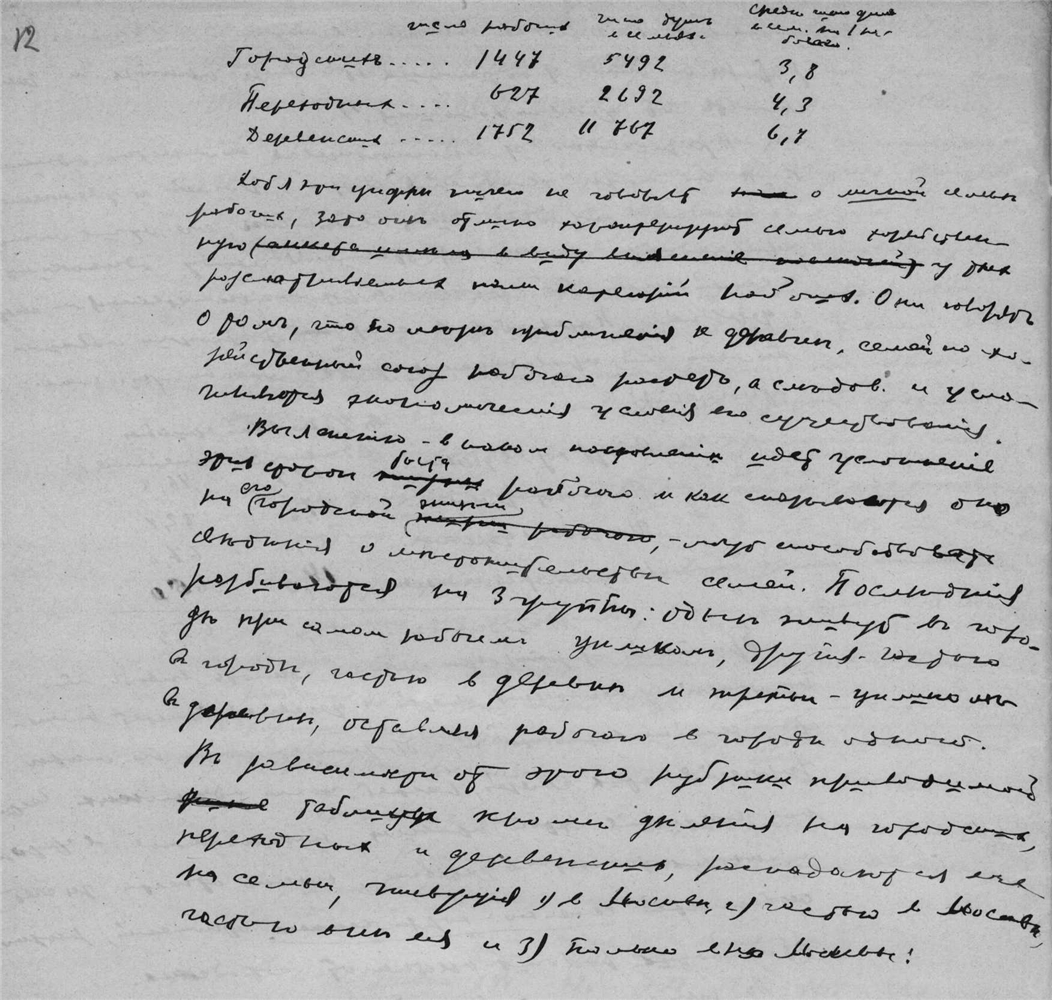 12
число рабочих число душъ среднее число душъ
в семьяхъ. в сем. на 1 ра-
бочего.
Городскихъ ..... 1447 5492 3,8
Переходных .... 627 2692 4,3
Деревенских ..... 1752 11 767 6,7
Хотя эти цифры ничего не говорят о личной семье
рабочих, зато они отлично характеризуют семью хозяйствен-
ную (анкета имела в виду выяснение последней) у трех
рассматриваемых нами категорий рабочих. Они говорят
о том, что по мере приближения к деревне, семейно-хо-
зяйственный союз рабочего растет, а следов. и усло-
жняются экономические условия его существования.
Выяснению - в каком направлении идет усложнение
этих сторон быта рабочего и как сказывается оно
на его городской жизни рабочего, - могут способствовать
сведения о местожительстве семей. Последния
разбиваются на 3 группы: одни живут в горо-
де при самом рабочем целиком, другия - частью
в городе, частью в деревне и третьи - целиком
в деревне, оставляя рабочего в городе одного.
Въ зависимости от этого рубрики приводимой
таблицы кроме деления на городских,
переходных и деревенских, распадаются еще
на семьи, живущия 1) в Москве, 2) частью в Москве,
частью вне ея и 3) только вне Москвы: